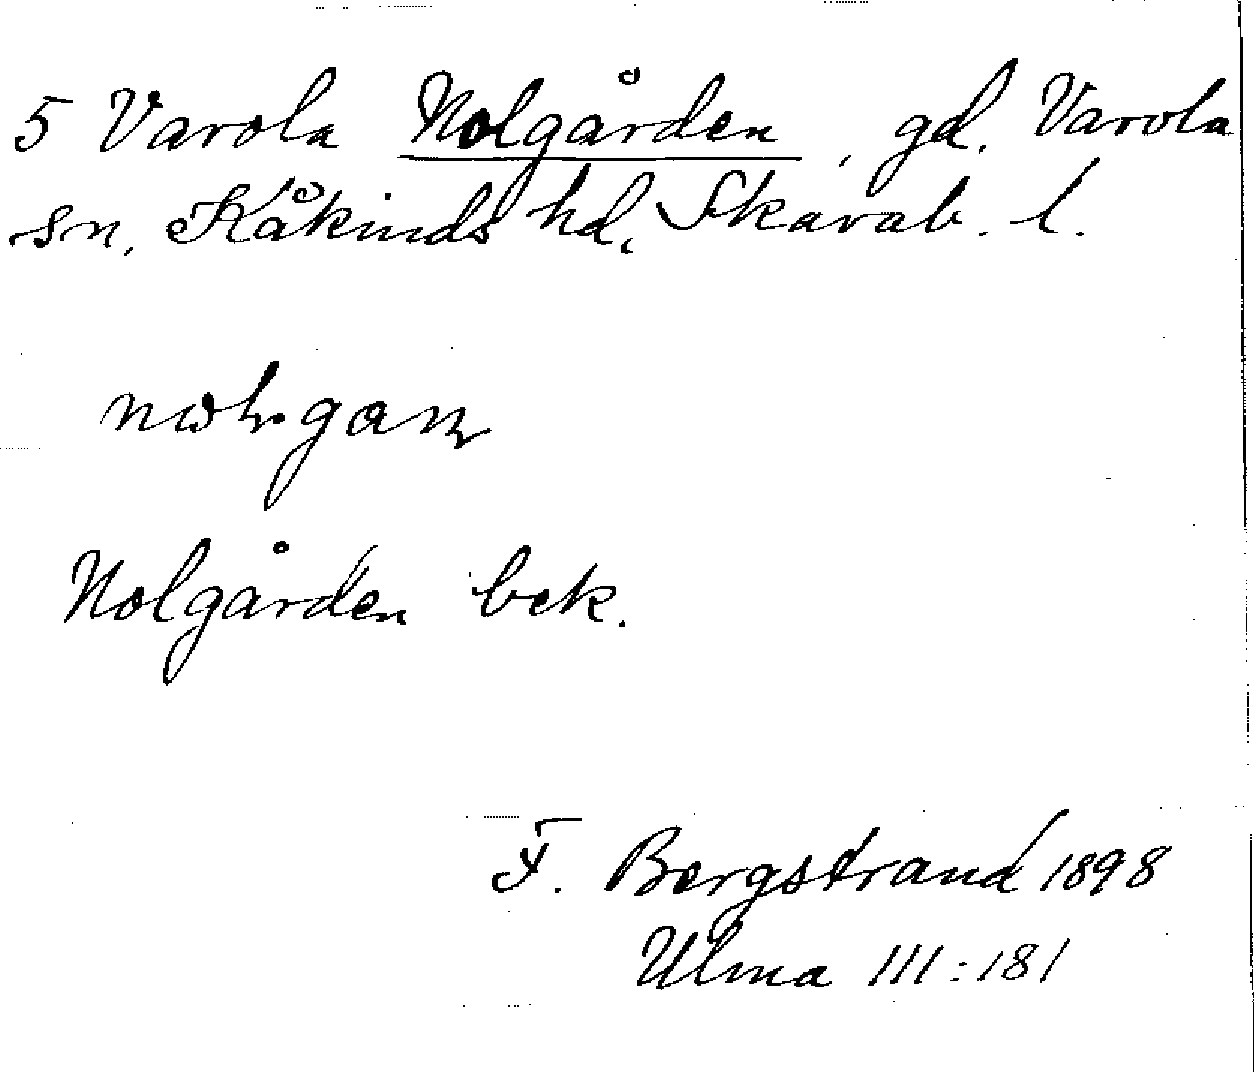 5 Varola Nolgården, gd. Varola
sn, Kåkinds hd, Skarab. l.
Nolgården bek.
F. Bergstrand 1898
Ulma III:181